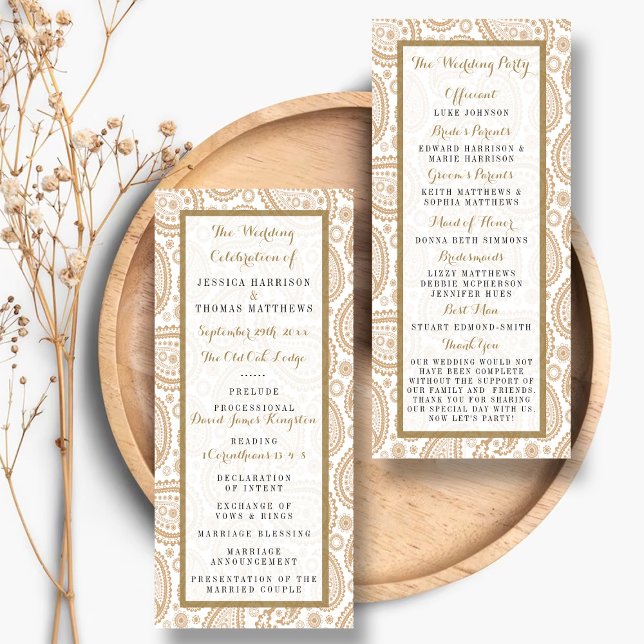 The Wedding
Celebration of
JESSICA HARRISON
&
THOMAS MATTHEWS
September 29th. 20xx
The Old Oak Lodge
......
PRELUDE
PROCESSIONAL
David James Kingston
READING
1 Corinthians 13 4-8
DECLARATION
OF INTENT
EXCHANGE OF
VOWS & RINGS
MARRIAGE BLESSING
MARRIAGE
ANNOUNCEMENT
PRESENTATION OF THE
MARRIED COUPLE
The Wedding Party
Officiant
LUKE JOHNSON
Bride's Parents
EDWARD HARRISON &
MARIE HARRISON
Groom's Parents
KEITH MATTHEWS &
SOPHIA MATTHEWS
Maid of Honor
DONNA BETH SIMMONS
Bridesmaids
LIZZY MATTHEWS
DEBBIE MCPHERSON
JENNIFER HUES
Best Man
STUART EDMOND-SMITH
Thank You
OUR WEDDING WOULD NOT
HAVE BEEN COMPLETE
WITHOUT THE SUPPORT OF
OUR FAMILY AND FRIENDS.
THANK YOU FOR SHARING
OUR SPECIAL DAY WITH US,
NOW LET'S PARTY!